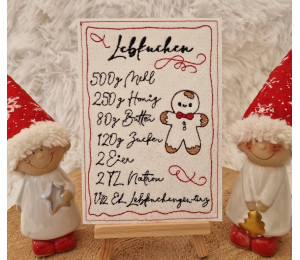 Lebkuchen
500g Mehl
250g Honig
80g Butter
120g Zucker
2 Eier
2 TL Natron
1/2 EL Lebkuchengewürz